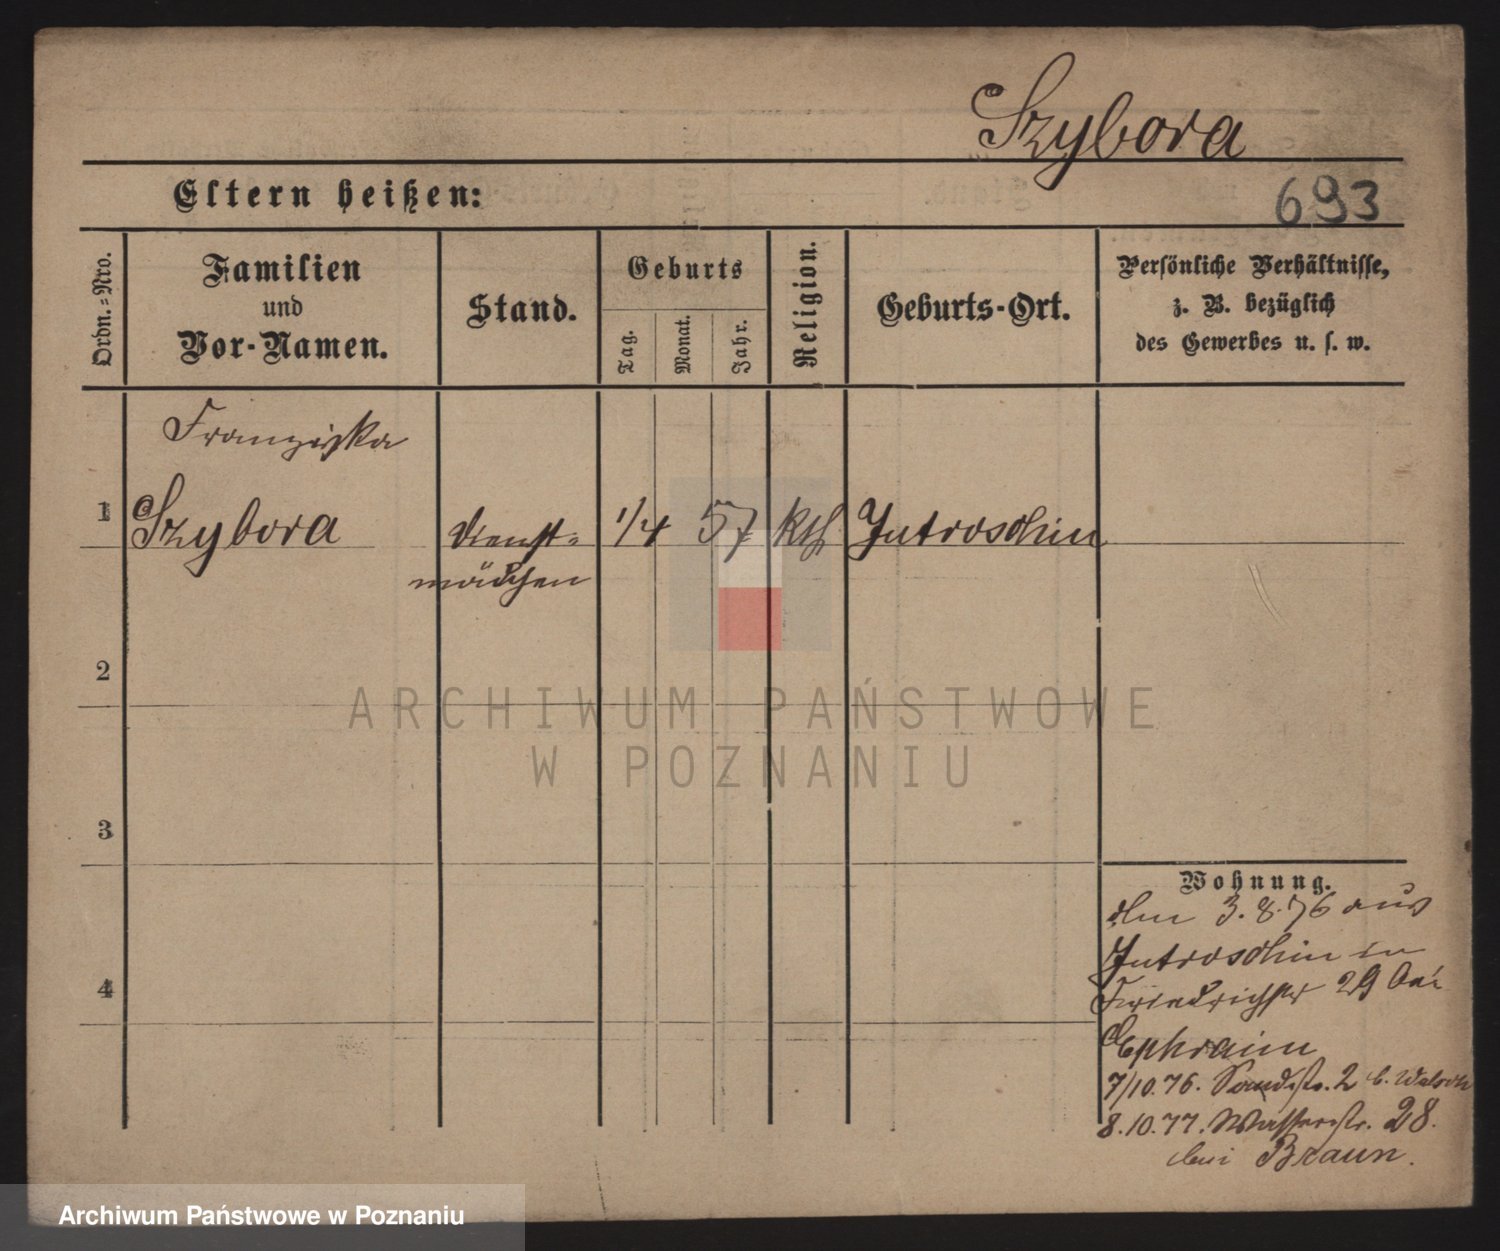 Szybora
Eltern heißen:
693
Ordn.=Nro.
Familien
und
Vor-Namen.
Stand.
Geburts
Tag.
Monat.
Jahr.
Religion.
Geburts-Ort.
Persönliche Verhältnisse,
z. B. bezüglich
des Gewerbes u. s. w.
Franziska
1 Szybora Dienst= 1/4 57 kth Jutroschin
mädchen
2
ARCHIWUM PAŃSTWOWE
W POZNANIU
3
4
Wohnung.
3.8.76 aus
Jutroschin in
Friedrichstr 29 bei
Ephraim
7/10.76. Sandstr. 2 b.
8.10.77. Wasserstr. 28.
bei Braun.
Archiwum Państwowe w Poznaniu